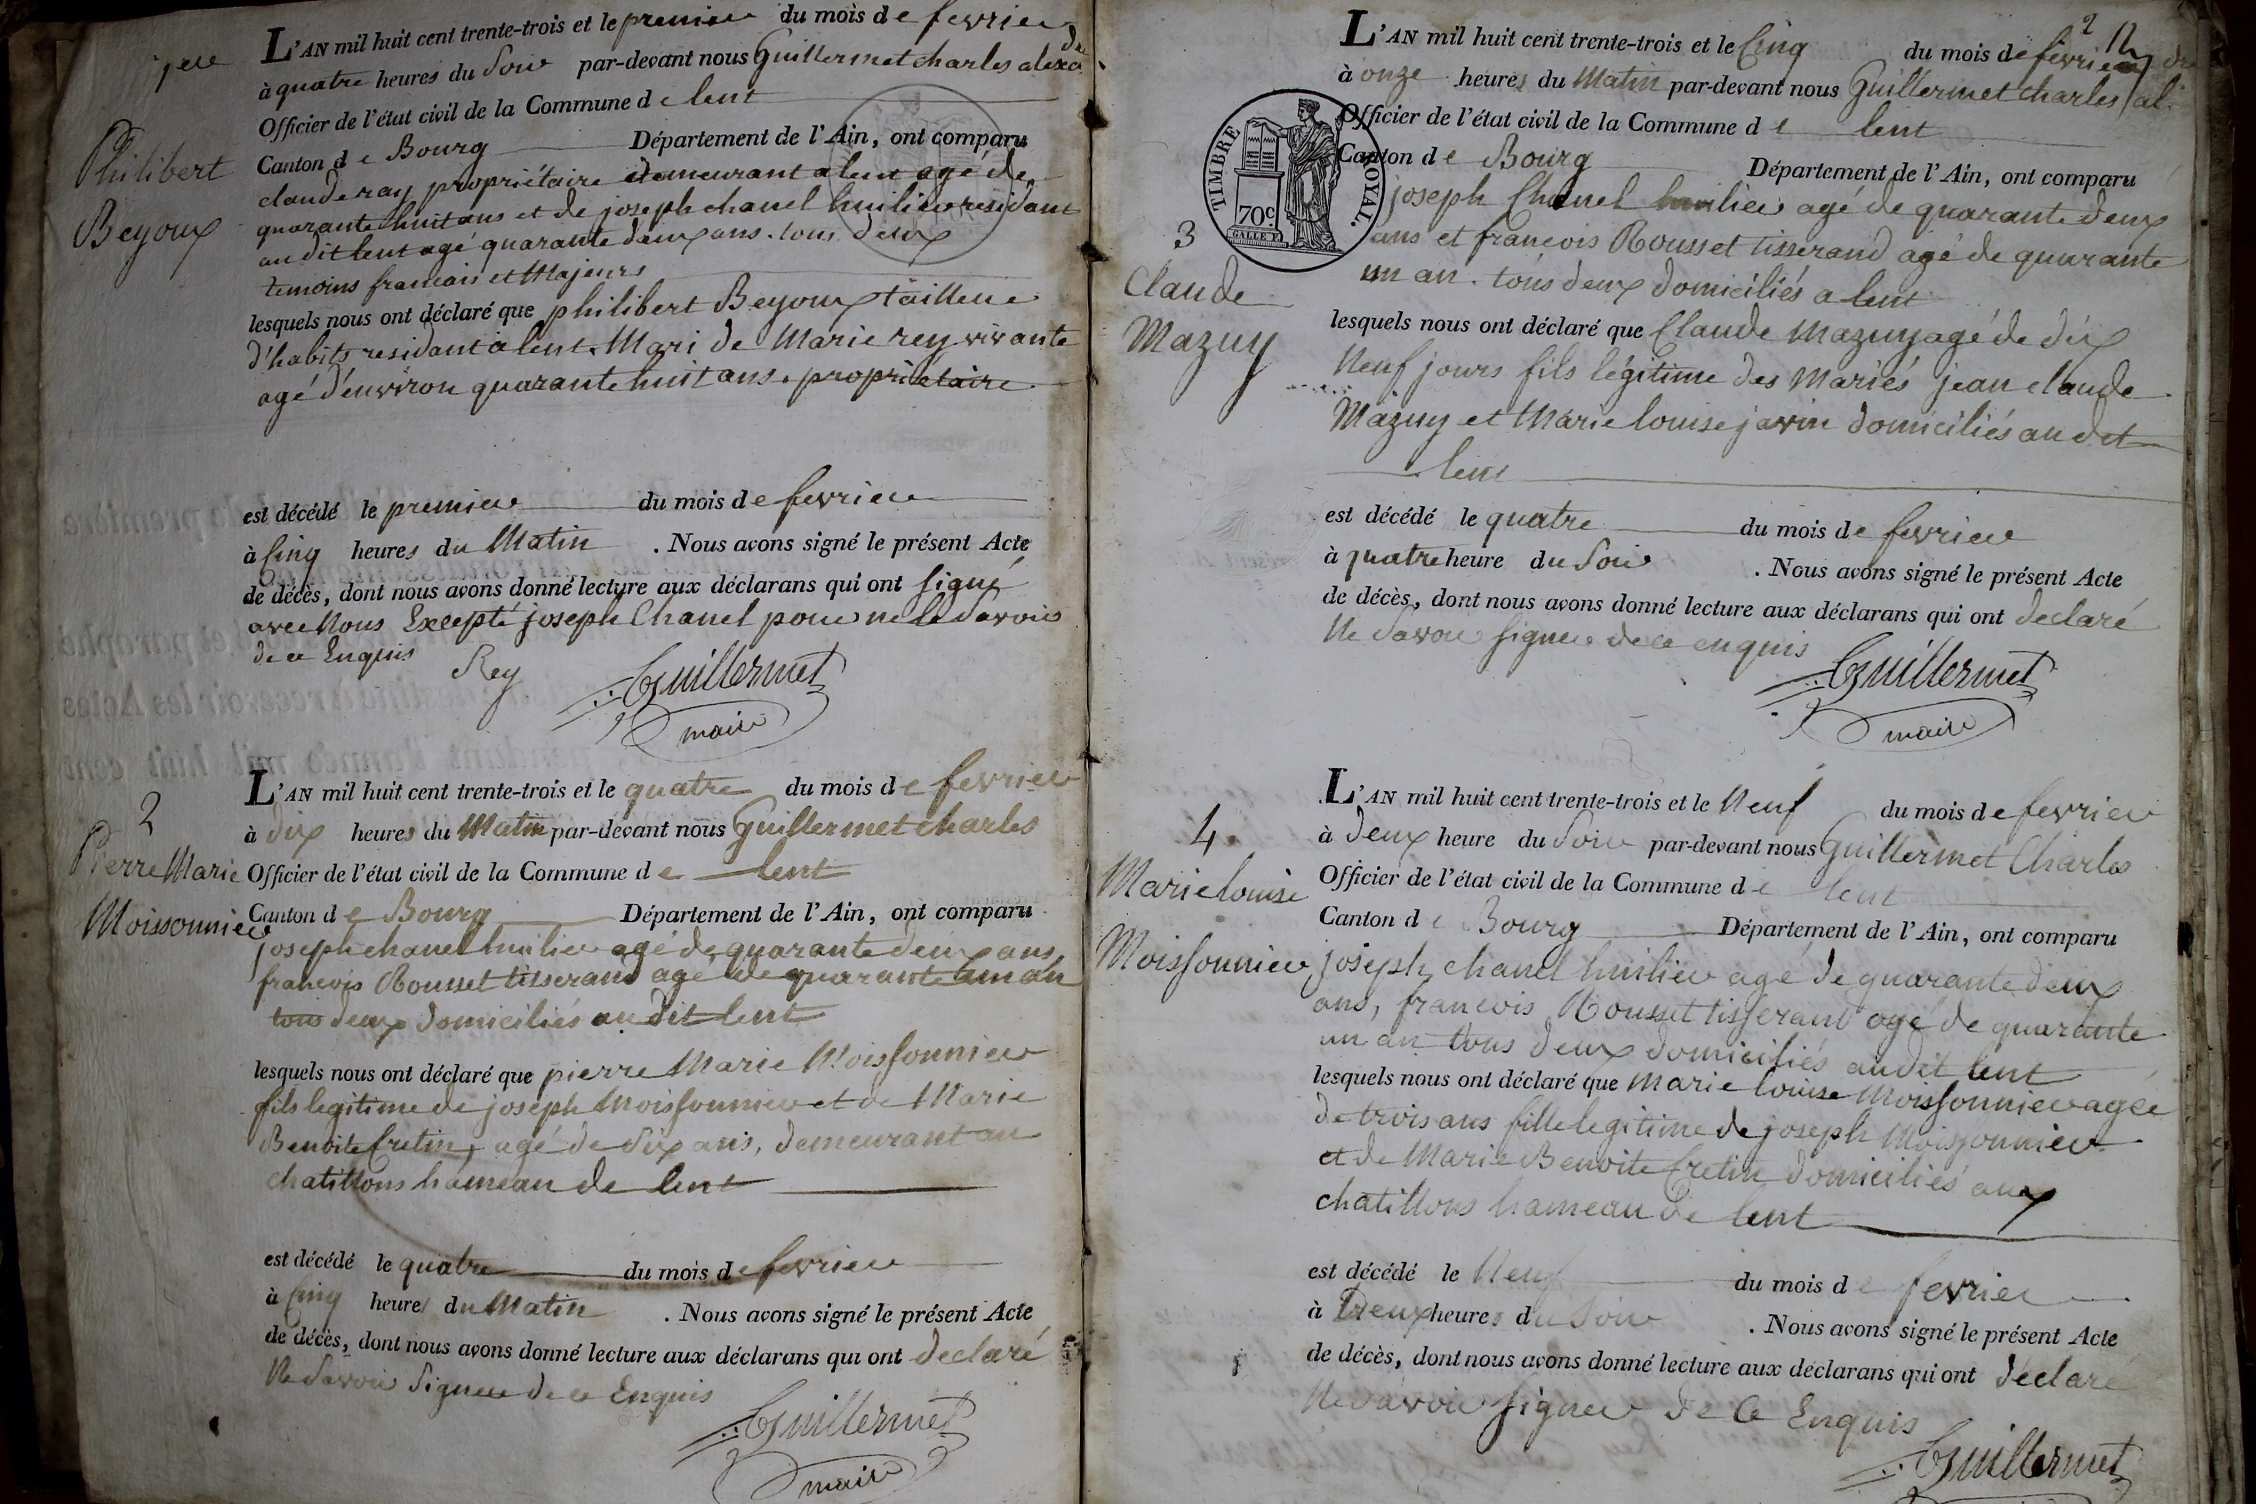 1ere
Philibert
Beyoux
L'AN mil huit cent trente-trois et le premier du mois de fevrier
à quatre heures du Soir par-devant nous Guillermet charles alexa
dre
Officier de l'état civil de la Commune de lent
Canton de Bourg Département de l'Ain, ont comparu
claude ray propriétaire demeurant a lent agé de
quarante huit ans et de joseph chanel huilier residant
au dit lent agé quarante deux ans. tous deux
temoins francais et Majeurs
lesquels nous ont déclaré que philibert Beyoux tailleur
d'habits residant a lent. Mari de Marie rey vivante
agé d'environ quarante huit ans. propriétaire
est décédé le premier du mois de fevrier
à Cinq heures du Matin . Nous avons signé le présent Acte
de décès, dont nous avons donné lecture aux déclarans qui ont signé
avec Nous Excepté joseph Chanel pour ne le Savoir
de ce Enquis
Rey Guillermet
maire
2
Pierre Marie
Moissonnier
L'AN mil huit cent trente-trois et le quatre du mois de fevrier
à dix heures du Matin par-devant nous Guillermet charles
Officier de l'état civil de la Commune de lent
Canton de Bourg Département de l'Ain, ont comparu
joseph chanel huilier agé de quarante deux ans
francois Rousset tisserand agé de quarante un an
tous deux domiciliés au dit lent
lesquels nous ont déclaré que pierre Marie Moissonnier
fils legitime de joseph Moissonnier et de Marie
Benoite Cretin, agé de Six ans, demeurant au
chatillons hameau de lent
est décédé le quatre du mois de fevrier
à Cinq heures du Matin . Nous avons signé le présent Acte
de décès, dont nous avons donné lecture aux déclarans qui ont declaré
Ne Savoir Signer de ce Enquis
Guillermet
maire
2
TIMBRE ROYAL.
70c.
GALLE F.
3
Claude
Mazuy
L'AN mil huit cent trente-trois et le Cinq du mois de fevrier
à onze heures du Matin par-devant nous Guillermet charles al.
Officier de l'état civil de la Commune de lent
Canton de Bourg Département de l'Ain, ont comparu
joseph Chanel huilier agé de quarante deux
ans et francois Rousset tisserand agé de quarante
un an. tous deux domiciliés a lent
lesquels nous ont déclaré que Claude Mazuy agé de dix
Neuf jours fils légitime des Mariés jean claude
Mazuy et Marie louise javin domiciliés au dit
lent
est décédé le quatre du mois de fevrier
à quatre heure du Soir . Nous avons signé le présent Acte
de décès, dont nous avons donné lecture aux déclarans qui ont declaré
Ne Savoir Signer de ce enquis
Guillermet
maire
4.
Marie louise
Moissonnier
L'AN mil huit cent trente-trois et le Neuf du mois de fevrier
à deux heure du Soir par-devant nous Guillermet Charles
Officier de l'état civil de la Commune de lent
Canton de Bourg Département de l'Ain, ont comparu
joseph chanel huilier agé de quarante deux
ans, francois Rousset tisserand agé de quarante
un an tous deux domiciliés audit lent
lesquels nous ont déclaré que Marie louise Moissonnier agée
de trois ans fille legitime de joseph Moissonnier
et de Marie Benoite Cretin domiciliés aux
chatillons hameau de lent
est décédé le Neuf du mois de fevrier
à Deux heures du Soir . Nous avons signé le présent Acte
de décès, dont nous avons donné lecture aux déclarans qui ont déclaré
Ne Savoir Signer de ce Enquis
Guillermet